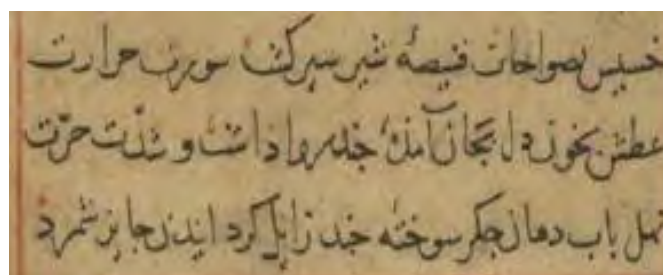 خسیس بصواحات قنیصهٔ شیر سیر کشد سورت حرارت
عطش بخون دل بجان آمدهٔ چند روا داشت و شدّت حرّت
بآب دهان جکر سوختهٔ چند زایل کردانیدن جایز شمرد